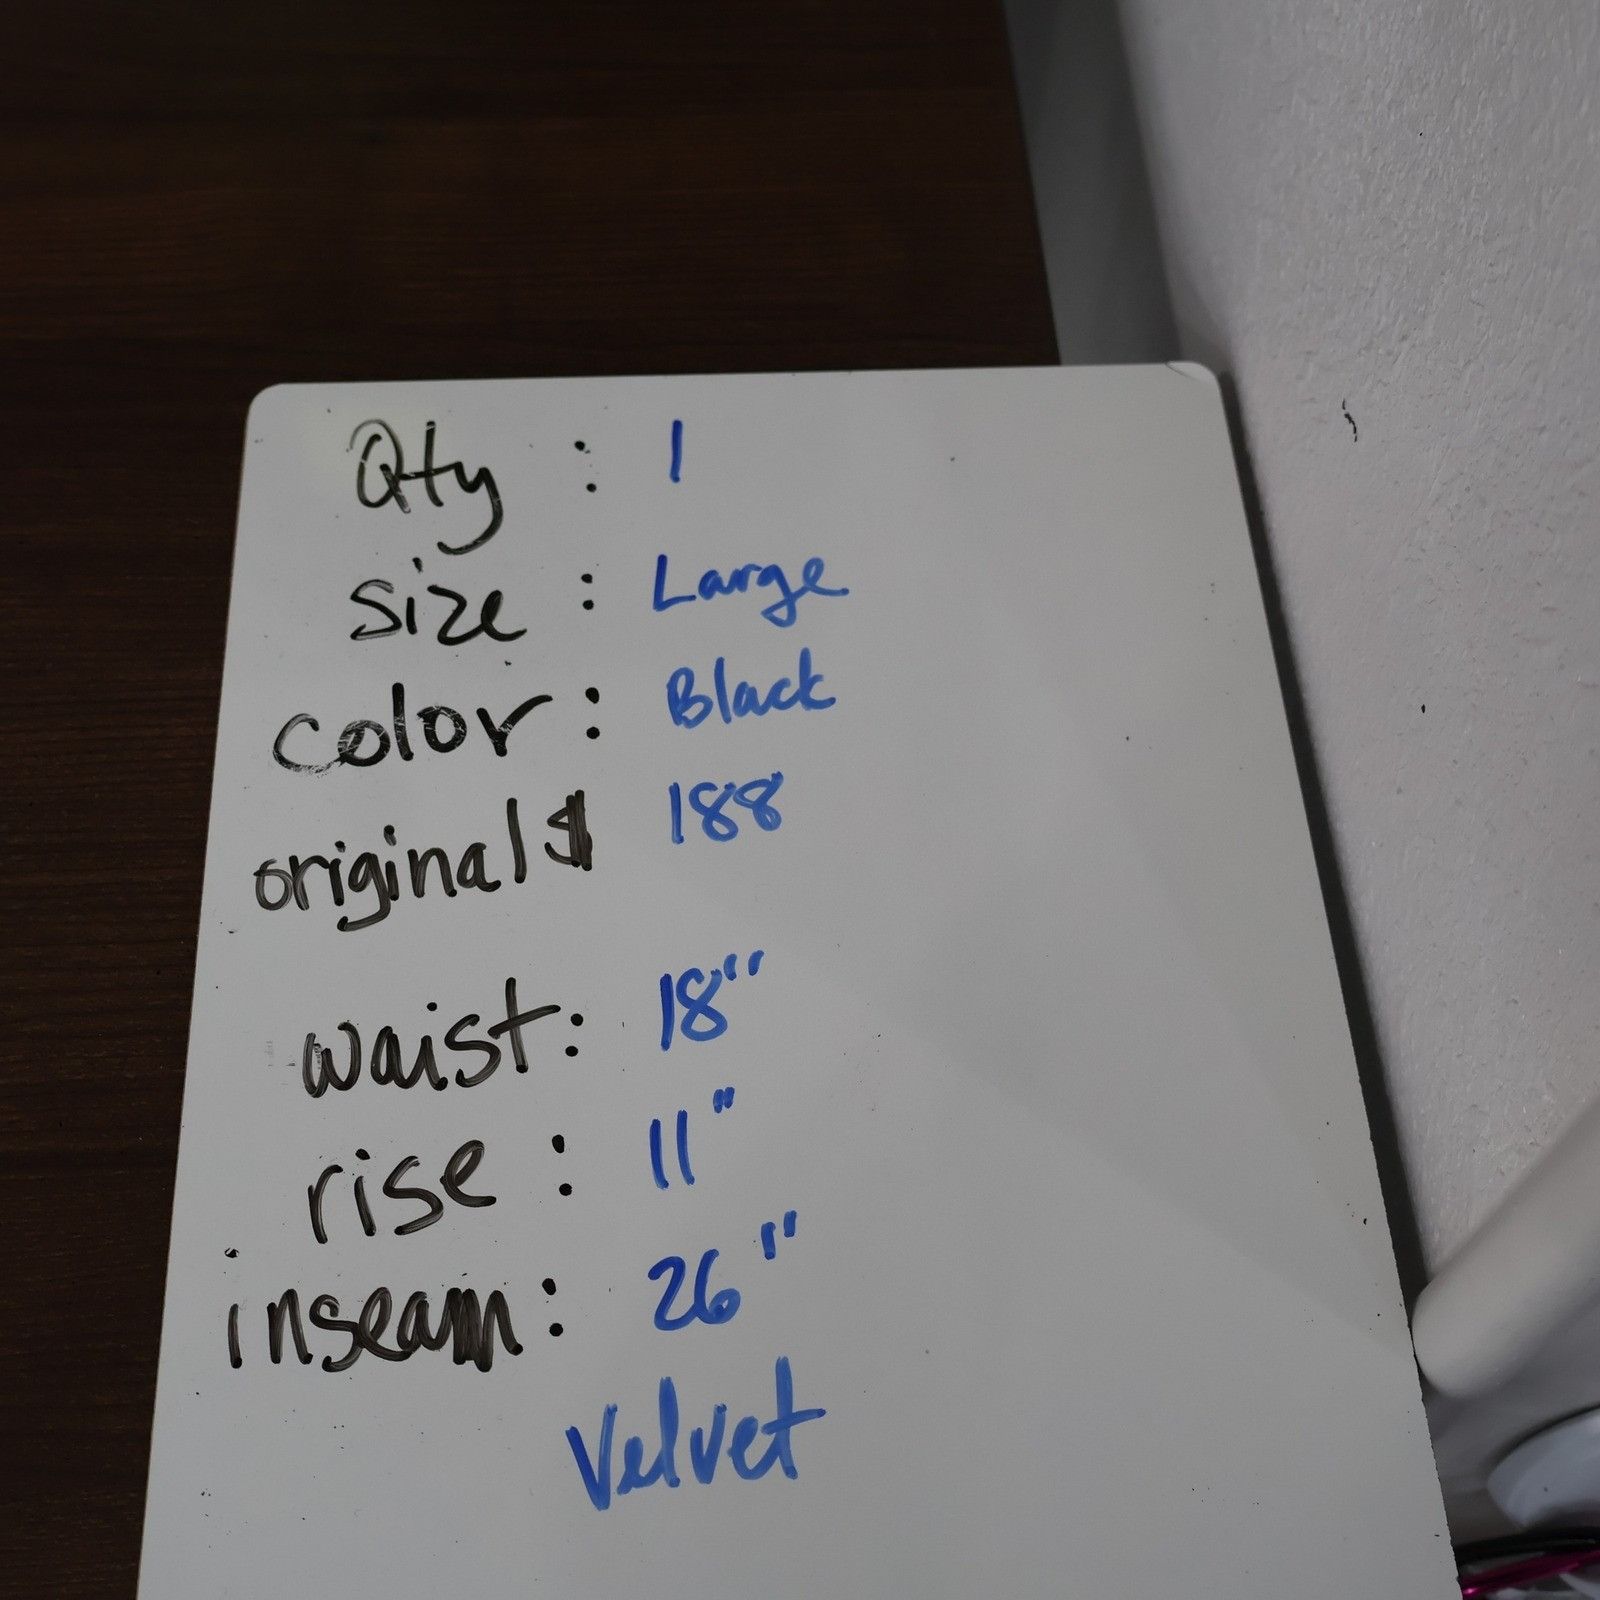 Qty : 1
size : Large
color : Black
original $ 188
waist : 18"
rise : 11"
inseam : 26"
Velvet